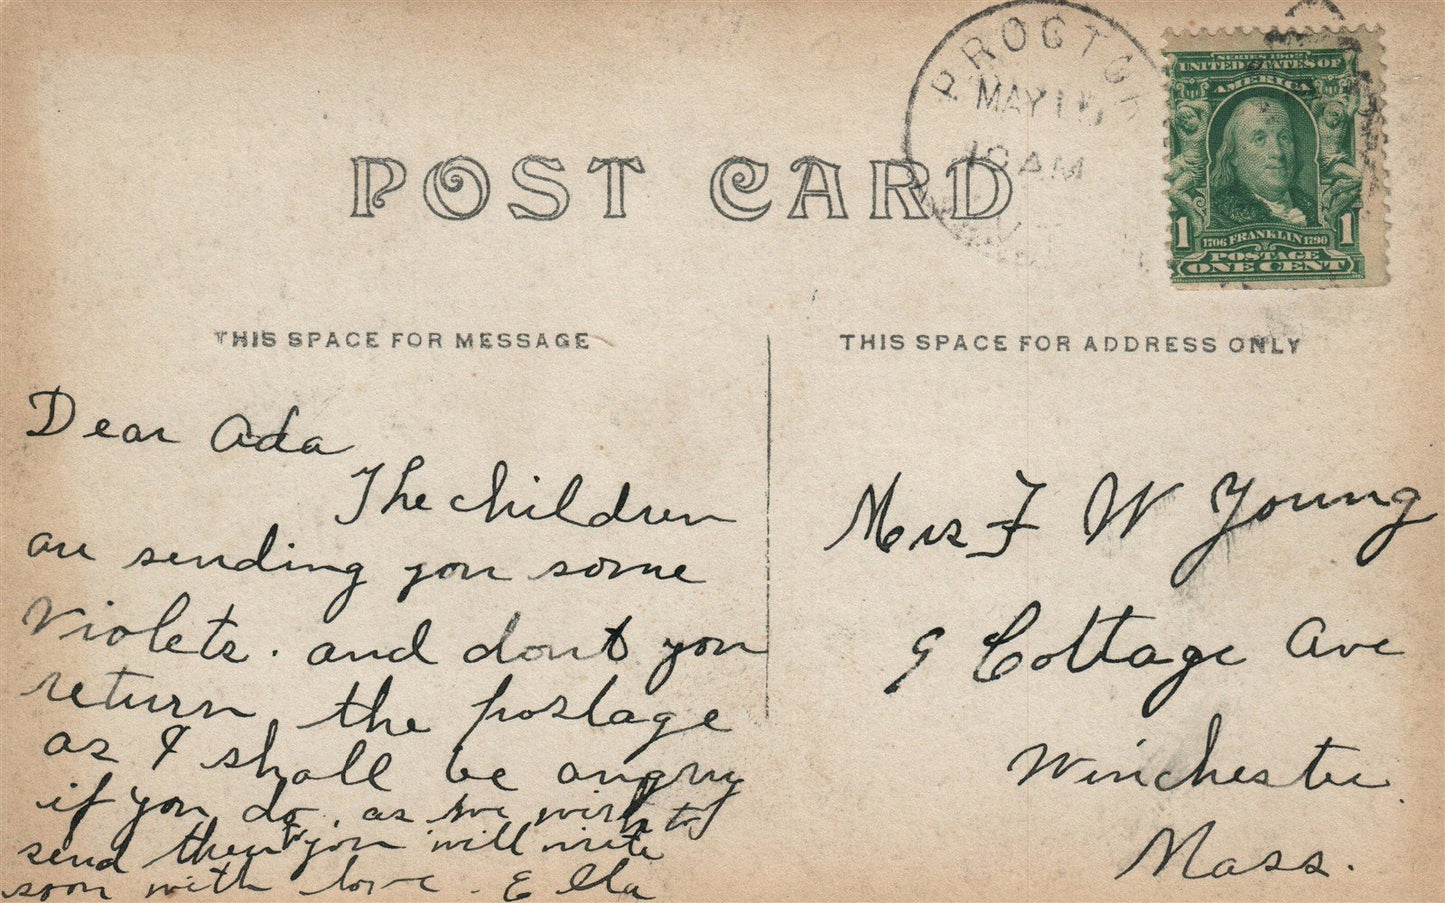 PROCTOR
MAY
10 AM
VT
SERIES 1902
UNITED STATES OF
AMERICA
1 1706 FRANKLIN 1790 1
POSTAGE
ONE CENT
POST CARD
THIS SPACE FOR MESSAGE
THIS SPACE FOR ADDRESS ONLY
Dear Ada
The children
are sending you some
Violets. and dont you
return the postage
as I shall be angry
if you do, as we wish to
send them you will write
soon with love. Ella
Mrs F W Young
9 Cottage Ave
Winchester.
Mass.